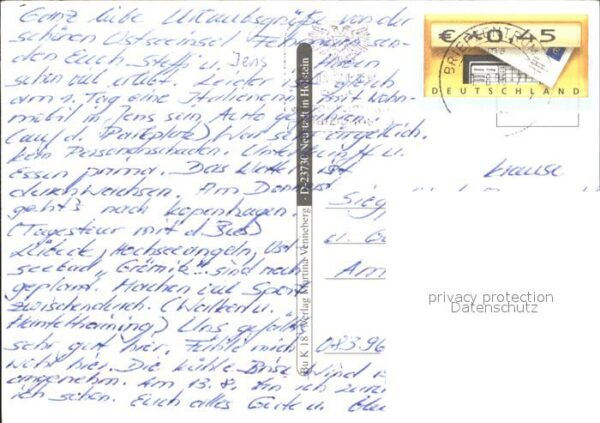 Ganz liebe Urlaubsgrüße von der
schönen Ostseeinsel Fehmarn sen-
den Euch Steffi u. Jens. Haben
schon viel erlebt. Leider ist gleich
am 1. Tag eine Italienerin mit Wohn-
mobil in Jens sein Auto gefahren.
(auf d. Parkplatz) War sehr ärgerlich.
kein Personenschaden. Unterkunft u.
Essen prima. Das Wetter ist
durchwachsen. Am Donnerst
geht's nach Kopenhagen.
(Tagestour mit d. Bus)
Lübeck, Hochseeangeln, Ost
seebad „Grömitz" sind noch
geplant. Machen viel Sport
zwischendurch. (Walken u.
Hanteltraining) Uns gefällt
sehr gut hier. Fühle mich
wohl hier. Die kühle Brise Wind ist
angenehm. Am 13.8. bin ich zurü
ich schon. Euch alles Gute u.
D-23730 Neustadt in Holstein
Bu K 18 Verlag Martina Venneberg
€ *0,45
DEUTSCHLAND
BRIEFZENTRUM
Krause
Sieg
u.
Am
0839
privacy protection
Datenschutz